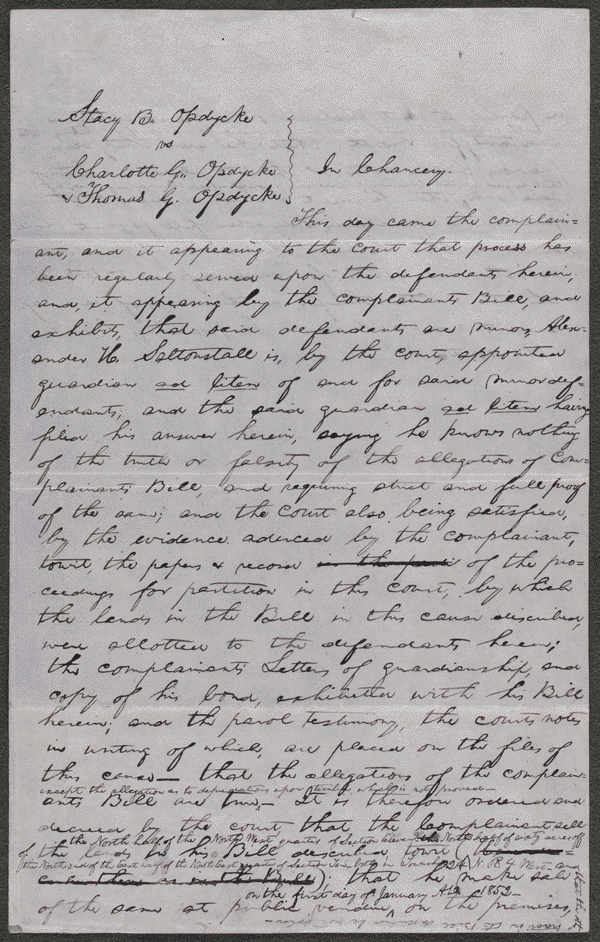 Stacy B. Opdycke
vs
Charlotte G. Opdycke
& Thomas G. Opdycke
In Chancery.
This day came the complain=
ant, and it appearing to the court that process has
been regularly served upon the defendants herein,
and, it appearing by the complainants Bill, and
exhibits, that said defendants are minors, Alex-
ander H. Saltonstall is, by the court, appointed
guardian ad litem of and for said minor def-
endants; and the said guardian ad litem having
filed his answer herein, saying he knows nothing
of the truth or falsity of the allegations of Com-
plainants Bill, and requiring strict and full proof
of the same; and the Court also being satisfied,
by the evidence adduced by the complainant,
towit, the papers & record in the of the pro=
ceedings for partition in this court, by which
the lands in the Bill in this cause described,
were allotted to the defendants herein;
the complainants Letters of guardianship, and
copy of his bond, exhibited with his Bill
herein; and the parol testimony, the courts notes
in writing of which, are placed on the files of
this cause — that the allegations of the complain-
except the allegation as to depredations upon timber, which is not proved —
ants Bill are true — It is therefore ordered and
decreed by the court that the Complainant sell
the North half of the North West quarter of Section eleven the North half of
of the lands in his Bill described towit
the North end of the East half of the North East quarter of Section
as in the Bill) that he make sale
on the first day of January A.D. 1852—
of the same at public vendue, on the premises,